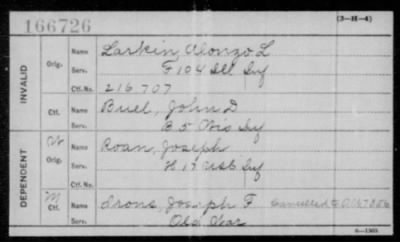 166726
(3-H-4)
INVALID
Orig.
Name Larkin, Alonzo L
Serv. F 104 Ill Inf
Ctf. No. 216707
Ctf.
Name Buel, John D
Serv. B 5 Inf
DEPENDENT
W Orig.
Name Roan, Joseph
Serv. H 17 Inf
Ctf. No.
M Ctf.
Name Irons, Joseph F Cancelled
Serv. Old War
6-1503